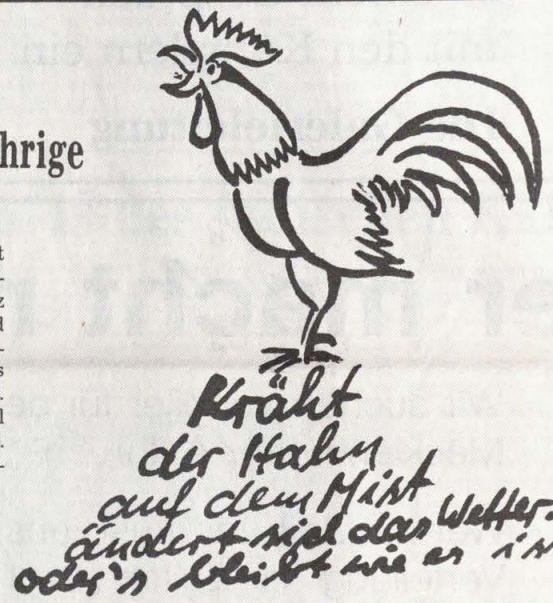 hrige
Kräht
der Hahn
auf dem Mist
ändert sich das Wetter.
oder's bleibt wie es ist